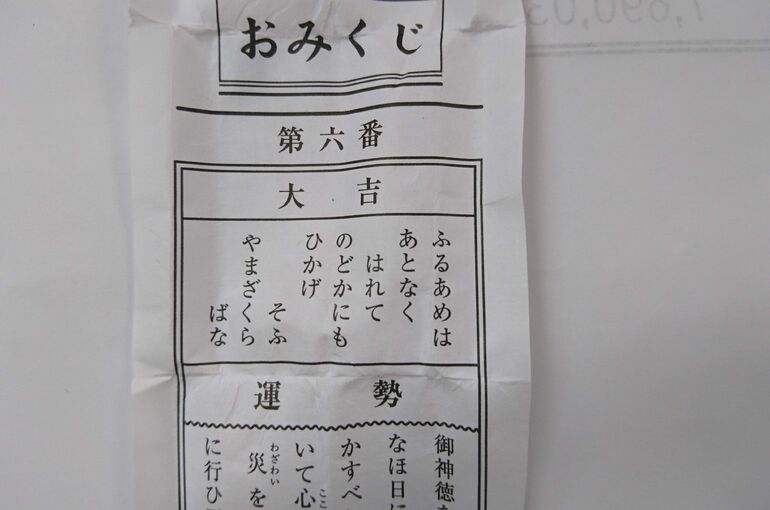 おみくじ
第六番
大吉
ふるあめは
あとなく
はれて
のどかにも
ひかげ
そふ
やまざくら
ばな
運勢
御神徳
なほ日に
かすべ
いて心
災を
わざわい
に行ひ
7,690,03